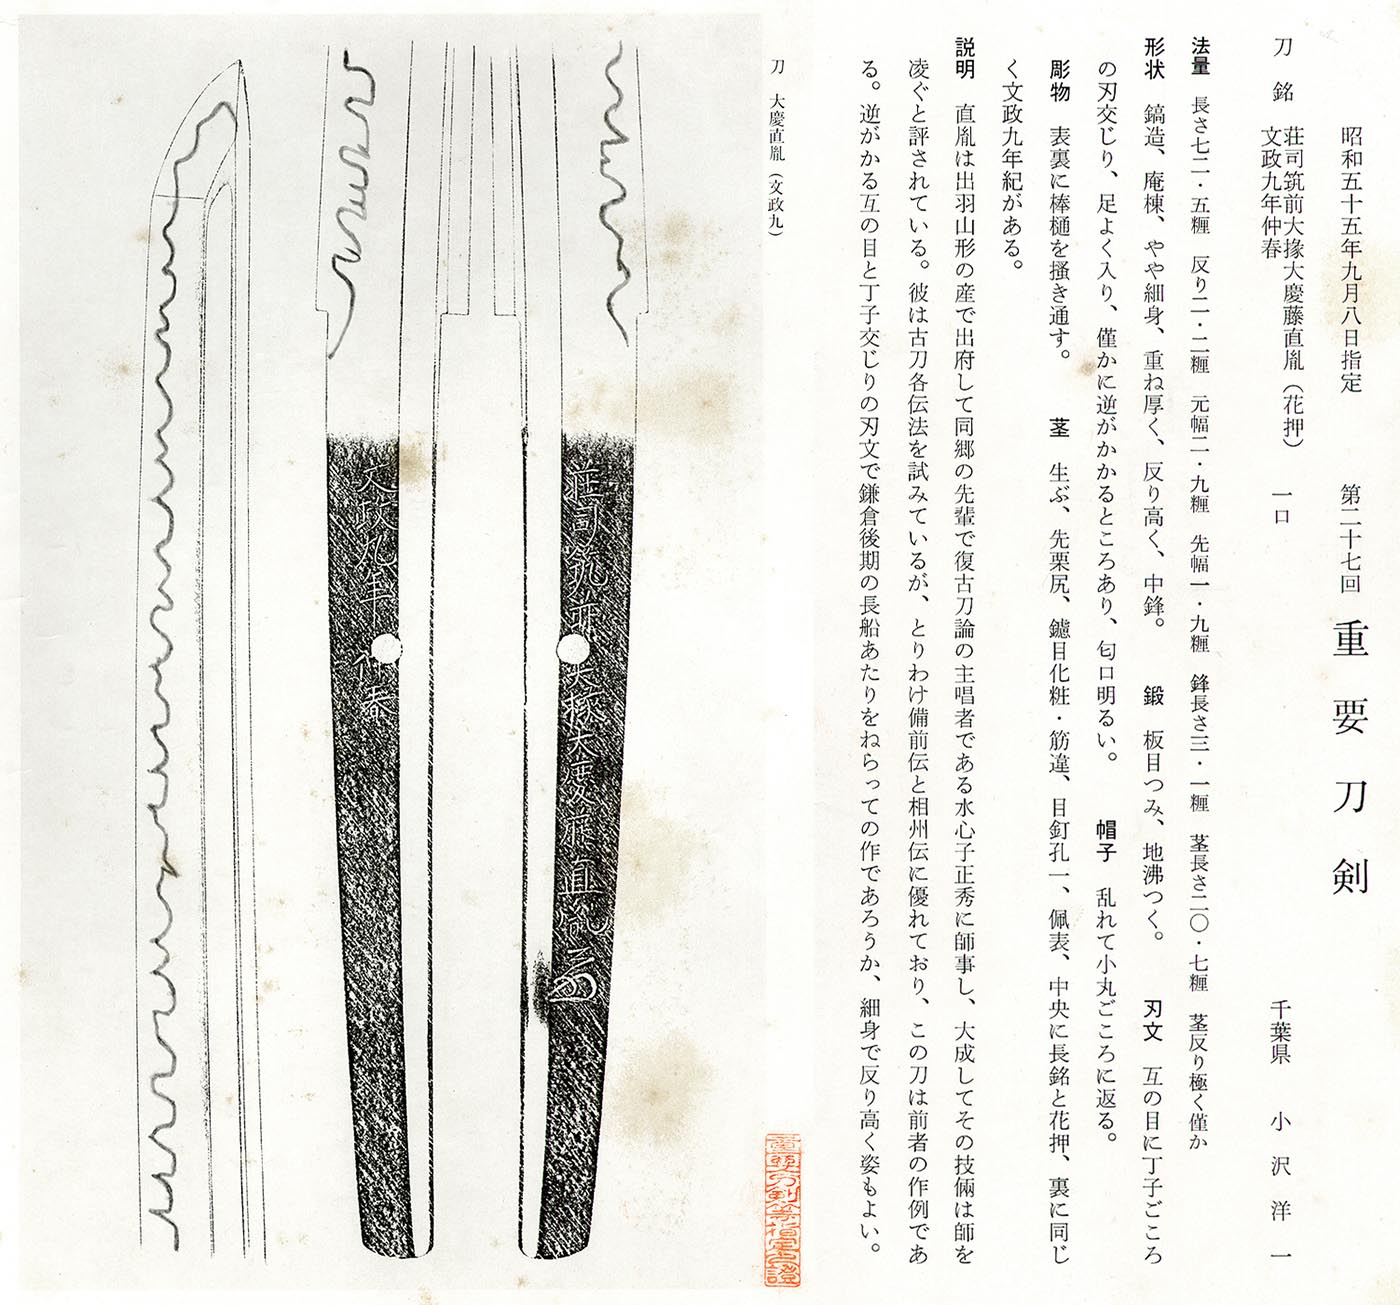 昭和五十五年九月八日指定　第二十七回　重要刀剣
刀　銘　荘司筑前大掾大慶藤直胤（花押）
文政九年仲春　一口　千葉県　小沢洋一
法量　長さ七二・五糎　反り二・二糎　元幅二・九糎　先幅一・九糎　鋒長さ三・一糎　茎長さ二〇・七糎　茎反り極く僅か
形状　鎬造、庵棟、やや細身、重ね厚く、反り高く、中鋒。　鍛　板目つみ、地沸つく。　刃文　互の目に丁子ごころ
の刃交じり、足よく入り、僅かに逆がかかるところあり、匂口明るい。　帽子　乱れて小丸ごころに返る。
彫物　表裏に棒樋を搔き通す。　茎　生ぶ、先栗尻、鑢目化粧・筋違、目釘孔一、佩表、中央に長銘と花押、裏に同じ
く文政九年紀がある。
説明　直胤は出羽山形の産で出府して同郷の先輩で復古刀論の主唱者である水心子正秀に師事し、大成してその技倆は師を
凌ぐと評されている。彼は古刀各伝法を試みているが、とりわけ備前伝と相州伝に優れており、この刀は前者の作例であ
る。逆がかる互の目と丁子交じりの刃文で鎌倉後期の長船あたりをねらっての作であろうか、細身で反り高く姿もよい。
刀　大慶直胤（文政九）
重要刀剣等指定之證
荘司筑前大掾大慶藤直胤
文政九年仲春